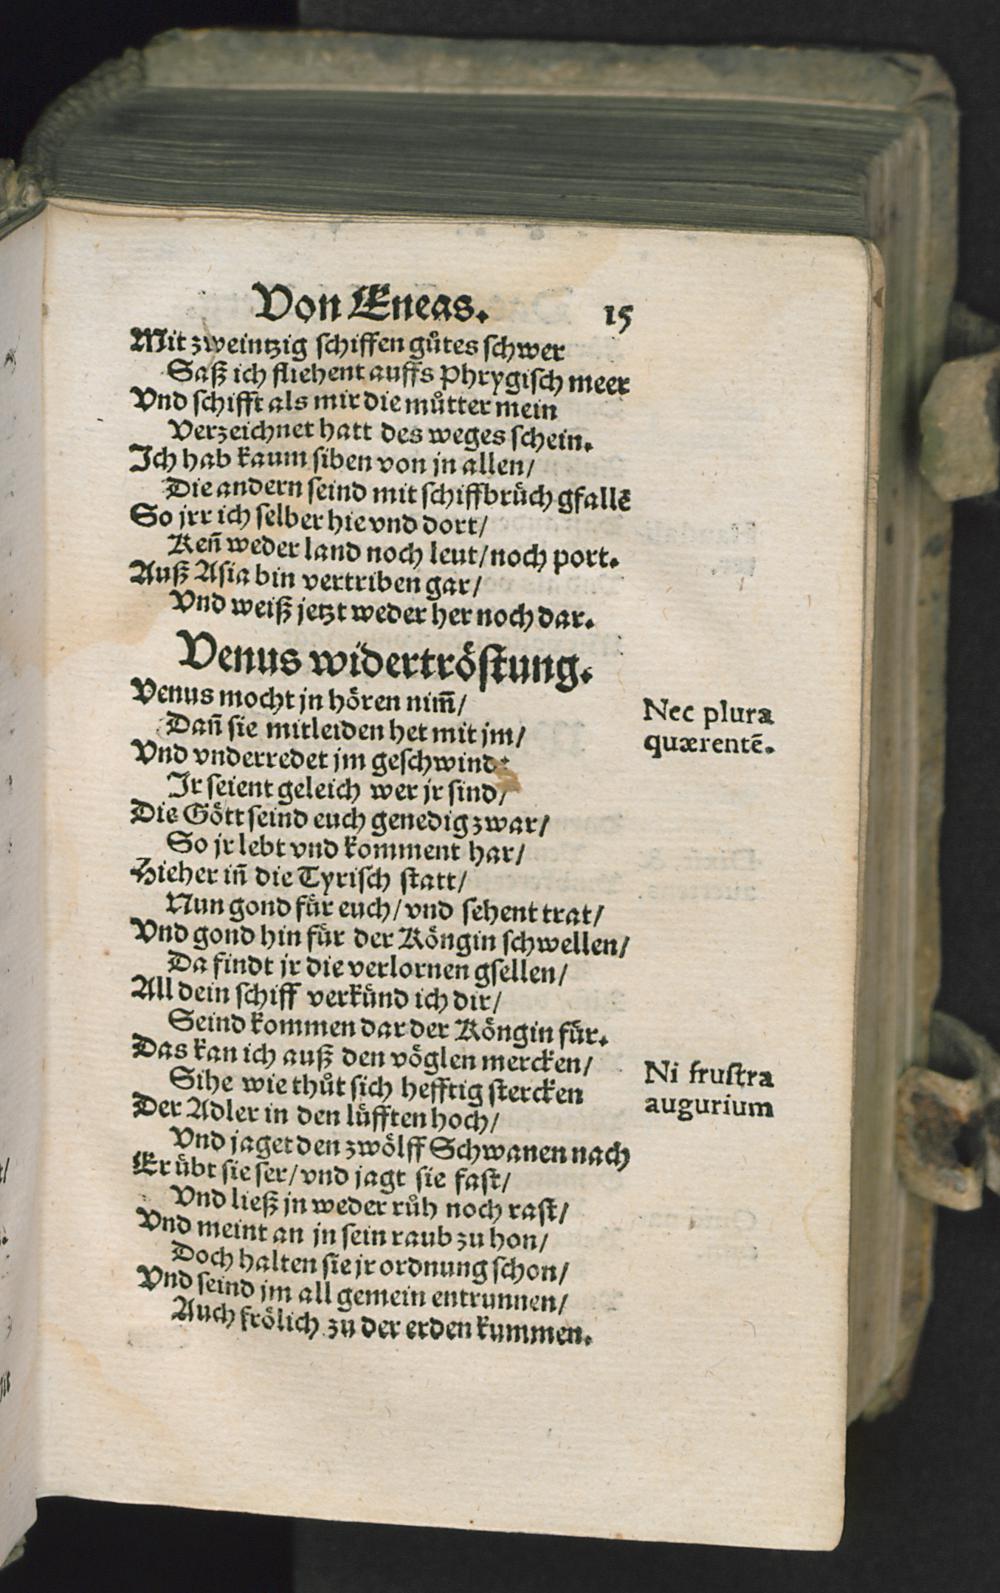 Von Eneas. 15
Mit zweintzig schiffen gůtes schwer
Saß ich fliehent auffs Phrygisch meer
Vnd schifft als mir die můtter mein
Verzeichnet hatt des weges schein.
Ich hab kaum siben von jn allen/
Die andern seind mit schiffbrüch gfallē
So jrr ich selber hie vnd dort/
Ken̄ weder land noch leut/ noch port.
Auß Asia bin vertriben gar/
Vnd weiß jetzt weder her noch dar.
Venus widertröstung.
Venus mocht jn hören nim̄/
Dan̄ sie mitleiden het mit jm/
Nec plura
quærentē.
Vnd vnderredet jm geschwind:
Ir seient geleich wer jr sind/
Die Gött seind euch genedig zwar/
So jr lebt vnd komment har/
Hieher in̄ die Tyrisch statt/
Nun gond für euch/ vnd sehent trat/
Vnd gond hin für der Köngin schwellen/
Da findt jr die verlornen gsellen/
All dein schiff verkünd ich dir/
Seind kommen dar der Köngin für.
Das kan ich auß den vöglen mercken/
Sihe wie thůt sich hefftig stercken
Ni frustra
augurium
Der Adler in den lüfften hoch/
Vnd jaget den zwölff Schwanen nach
Er übt sie ser/ vnd jagt sie fast/
Vnd ließ jn weder růh noch rast/
Vnd meint an jn sein raub zu hon/
Doch halten sie jr ordnung schon/
Vnd seind jm all gemein entrunnen/
Auch frölich zu der erden kummen.